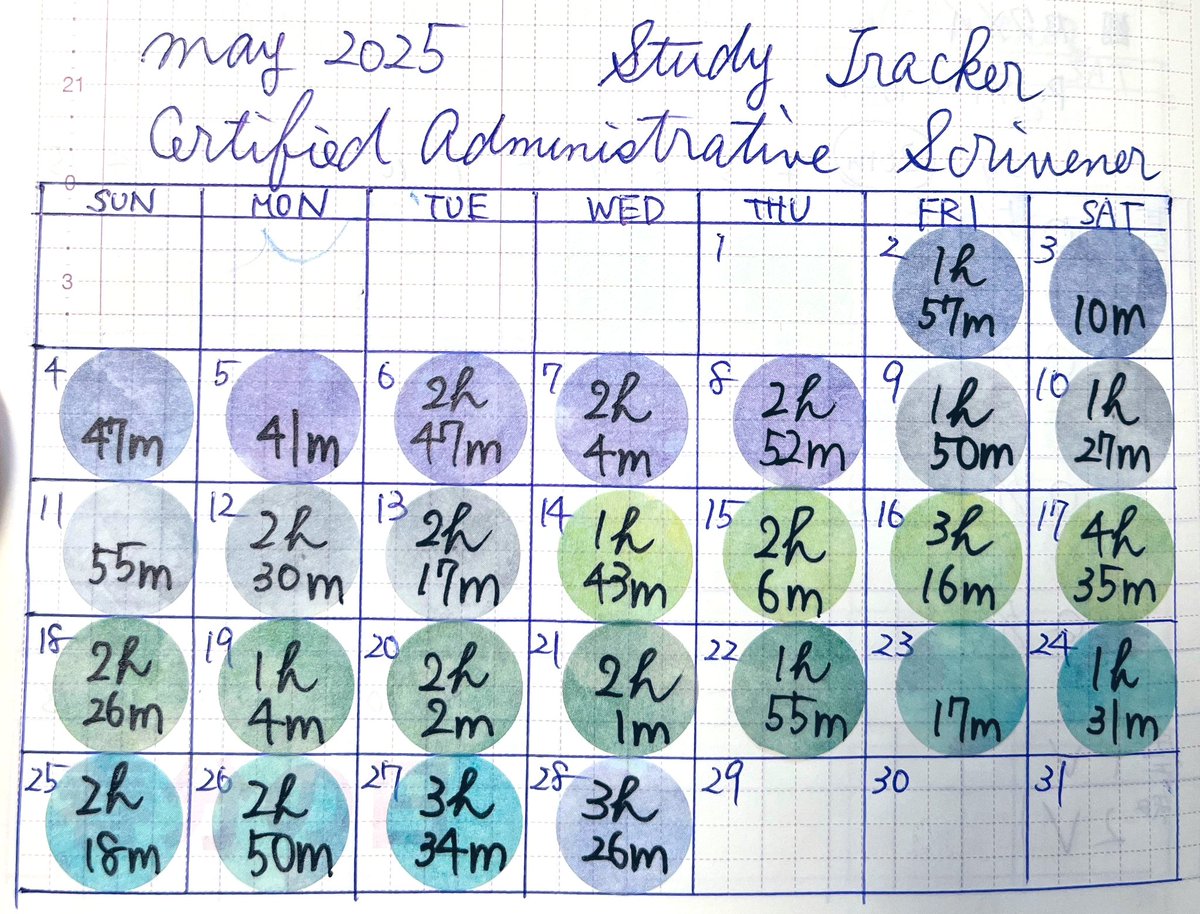 may 2025 Study Tracker
Certified Administrative Scrivener
SUN MON TUE WED THU FRI SAT
1 2 1h 57m 3 10m
4 47m 5 41m 6 2h 47m 7 2h 4m 8 2h 52m 9 1h 50m 10 1h 27m
11 55m 12 2h 30m 13 2h 17m 14 1h 43m 15 2h 6m 16 3h 16m 17 4h 35m
18 2h 26m 19 1h 4m 20 2h 2m 21 2h 1m 22 1h 55m 23 17m 24 1h 31m
25 2h 18m 26 2h 50m 27 3h 34m 28 3h 26m 29 30 31
21
0
3